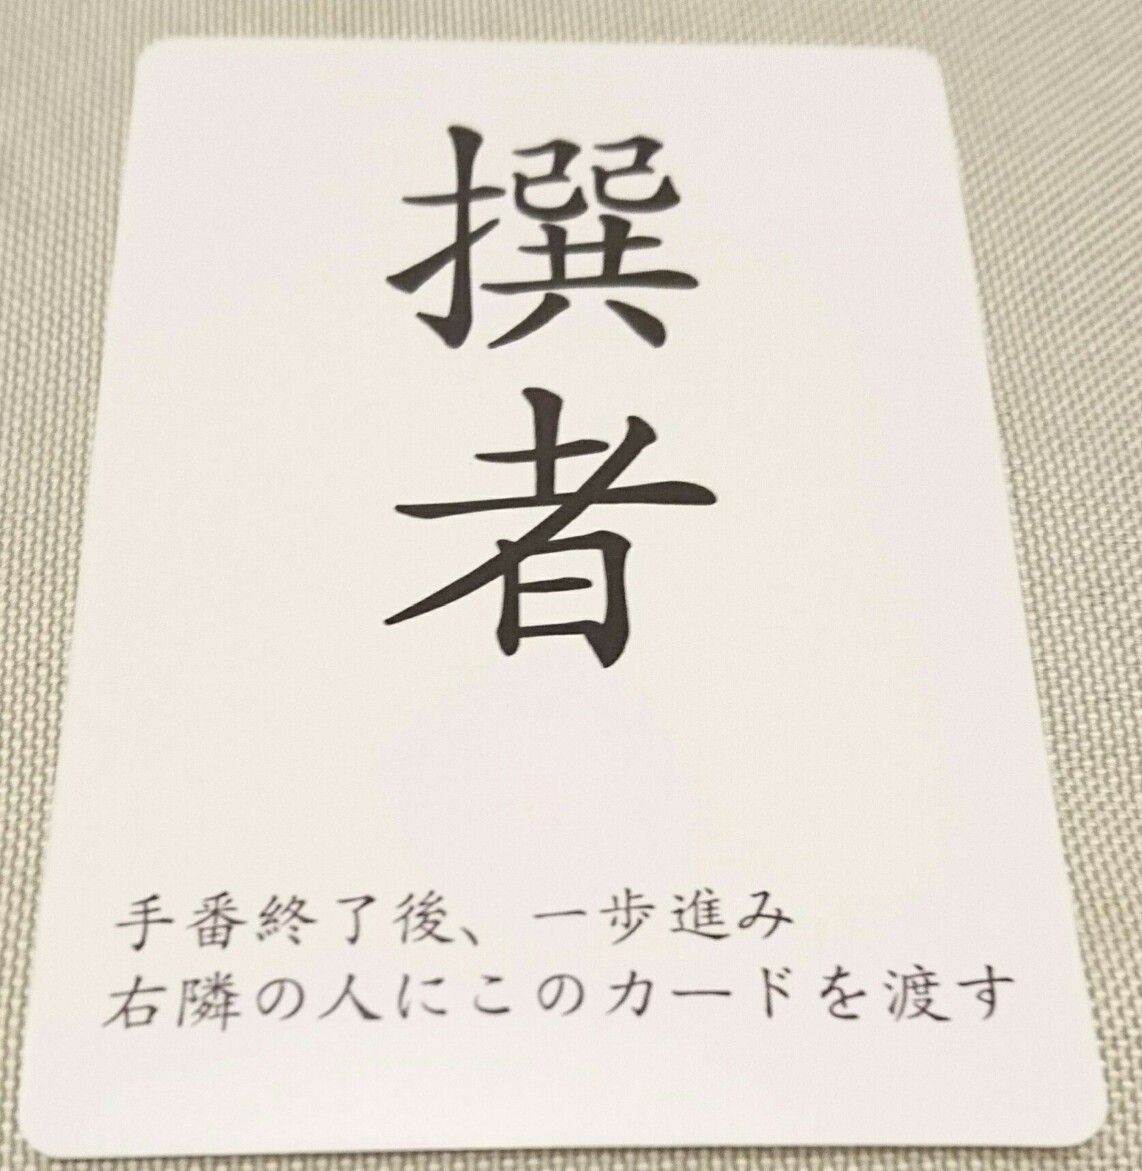 撰者
手番終了後、一歩進み
右隣の人にこのカードを渡す